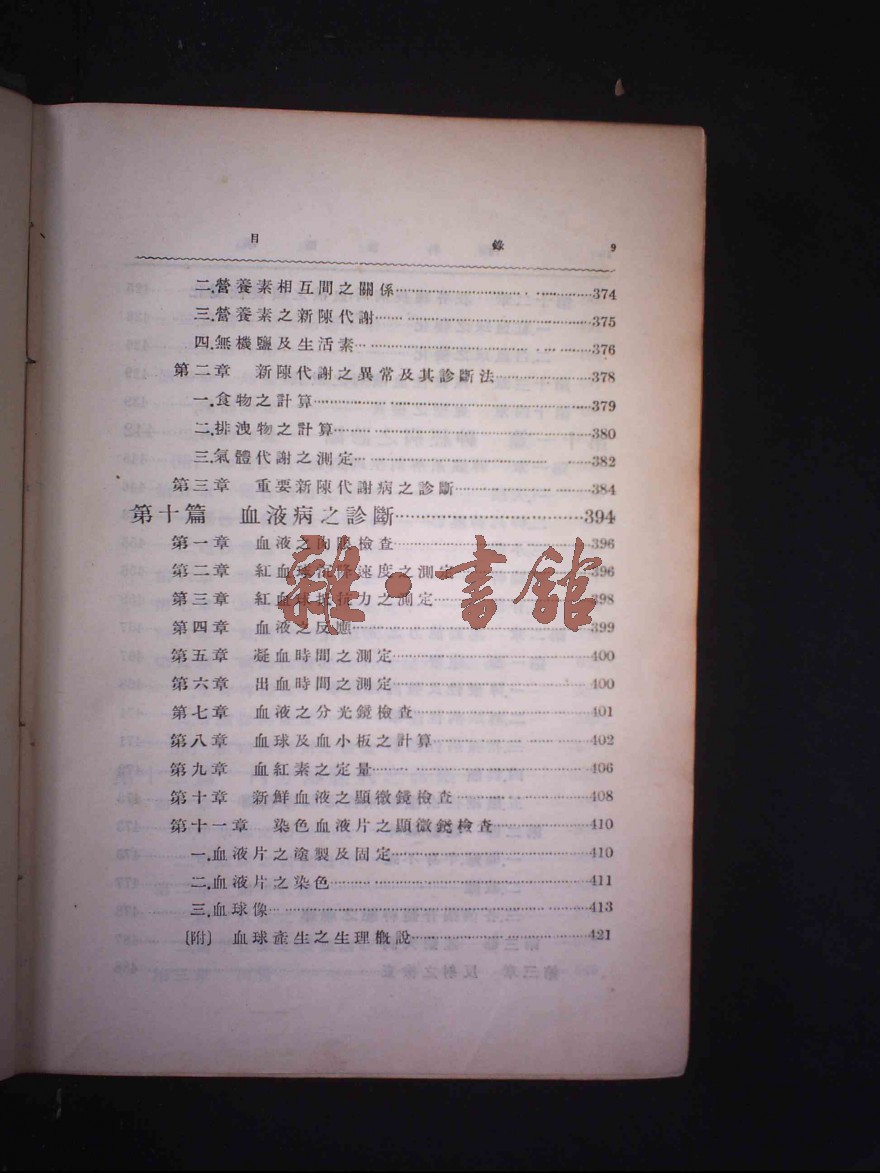 目 錄 9
二.營養素相互間之關係………374
三.營養素之新陳代謝………375
四.無機鹽及生活素………376
第二章 新陳代謝之異常及其診斷法………378
一.食物之計算………379
二.排洩物之計算………380
三.氣體代謝之測定………382
第三章 重要新陳代謝病之診斷………384
第十篇 血液病之診斷………394
第一章 血液之肉眼檢查………396
第二章 紅血球沉降速度之測定………396
第三章 紅血球抵抗力之測定………398
第四章 血液之反應………399
第五章 凝血時間之測定………400
第六章 出血時間之測定………400
第七章 血液之分光鏡檢查………401
第八章 血球及血小板之計算………402
第九章 血紅素之定量………406
第十章 新鮮血液之顯微鏡檢查………408
第十一章 染色血液片之顯微鏡檢查………410
一.血液片之塗製及固定………410
二.血液片之染色………411
三.血球像………413
〔附〕 血球產生之生理概說………421
雜·書館